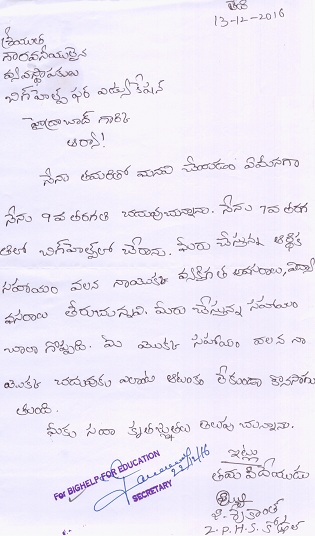 తేది
13-12-2016
శ్రీయుత
గౌరవనీయులైన
వ్యవస్థాపకులు
బిగ్‌హెల్ప్ ఫర్ ఎడ్యుకేషన్
హైద్రాబాద్ గారికి
ఆర్యా!
నేను తమరితో మనవి చేయడం ఏమనగా
నేను 9వ తరగతి చదువుచున్నాను. నేను 7వ తరగ
తిలో బిగ్‌హెల్ప్‌లో చేరాను. మీరు చేస్తున్న ఆర్థిక
సహాయం వలన నాయొక్క వ్యక్తిగత అవసరాలు, విద్యా
వసరాలు తీరుచున్నవి. మీరు చేస్తున్న సహాయం
చాలా గొప్పది. మీ యొక్క సహాయం వలన నా
యొక్క చదువుకు ఎలాంటి ఆటంకం లేకుండా కొనసాగు
తుంది.
మీకు సదా కృతజ్ఞతలు తెలుపు చున్నాను.
For BIGHELP FOR EDUCATION
22/12/16
SECRETARY
ఇట్లు
తమ విదేయుడు
జి. శ్రీకాంత్
Z.P.H.S.